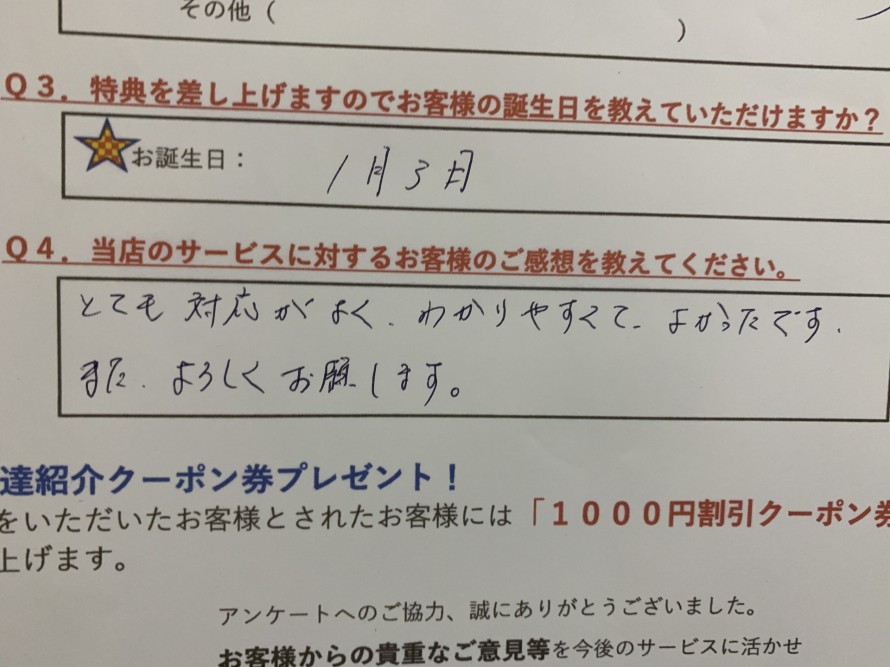 その他（　　　　　　　　　　）
Q３．特典を差し上げますのでお客様の誕生日を教えていただけますか？
お誕生日：　1月3日
Q４．当店のサービスに対するお客様のご感想を教えてください。
とても対応がよく、わかりやすくて、よかったです。
また、よろしくお願いします。
達紹介クーポン券プレゼント！
をいただいたお客様とされたお客様には「１０００円割引クーポン券
上げます。
アンケートへのご協力、誠にありがとうございました。
お客様からの貴重なご意見等を今後のサービスに活かせ